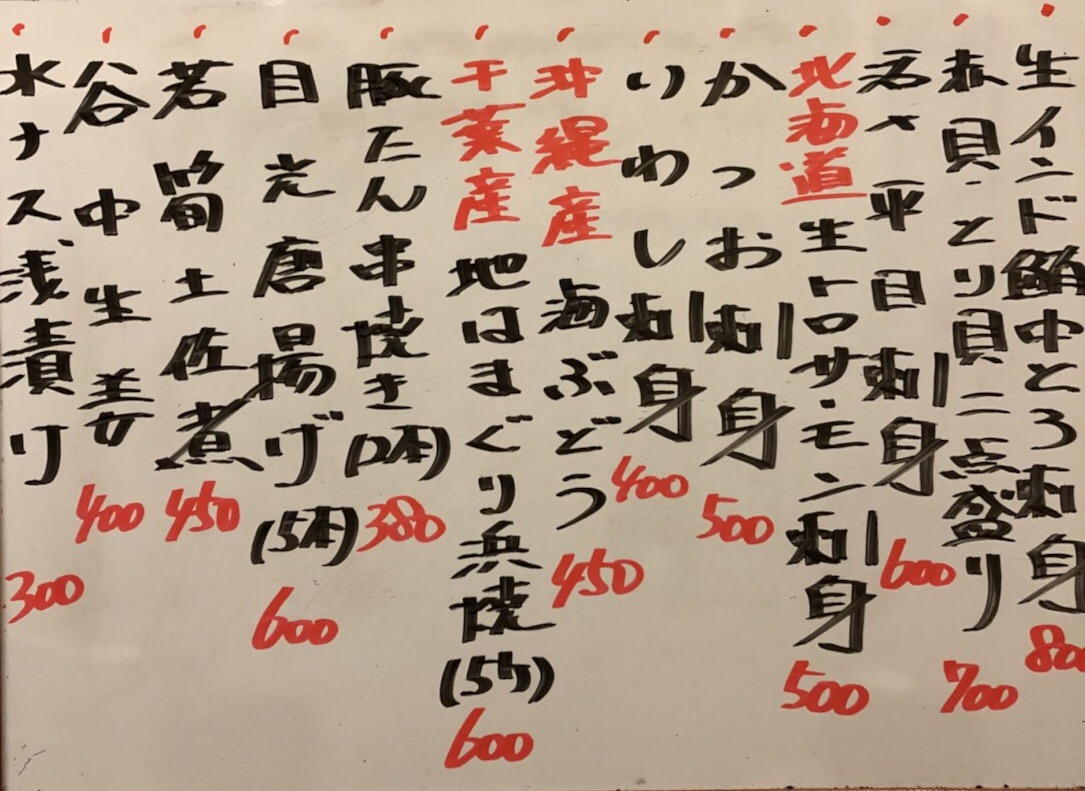 生インド鮪中とろ刺身 800
赤貝・とり貝二点盛り 700
平目刺身 600
北海道生トロサーモン刺身 500
かつお刺身 500
いわし刺身 400
沖縄産海ぶどう 450
千葉産地はまぐり浜焼(5ケ) 600
豚たん串焼き(2本) 380
目光唐揚げ(5本) 600
若筍土佐煮 450
谷中生姜 400
水ナス浅漬け 300